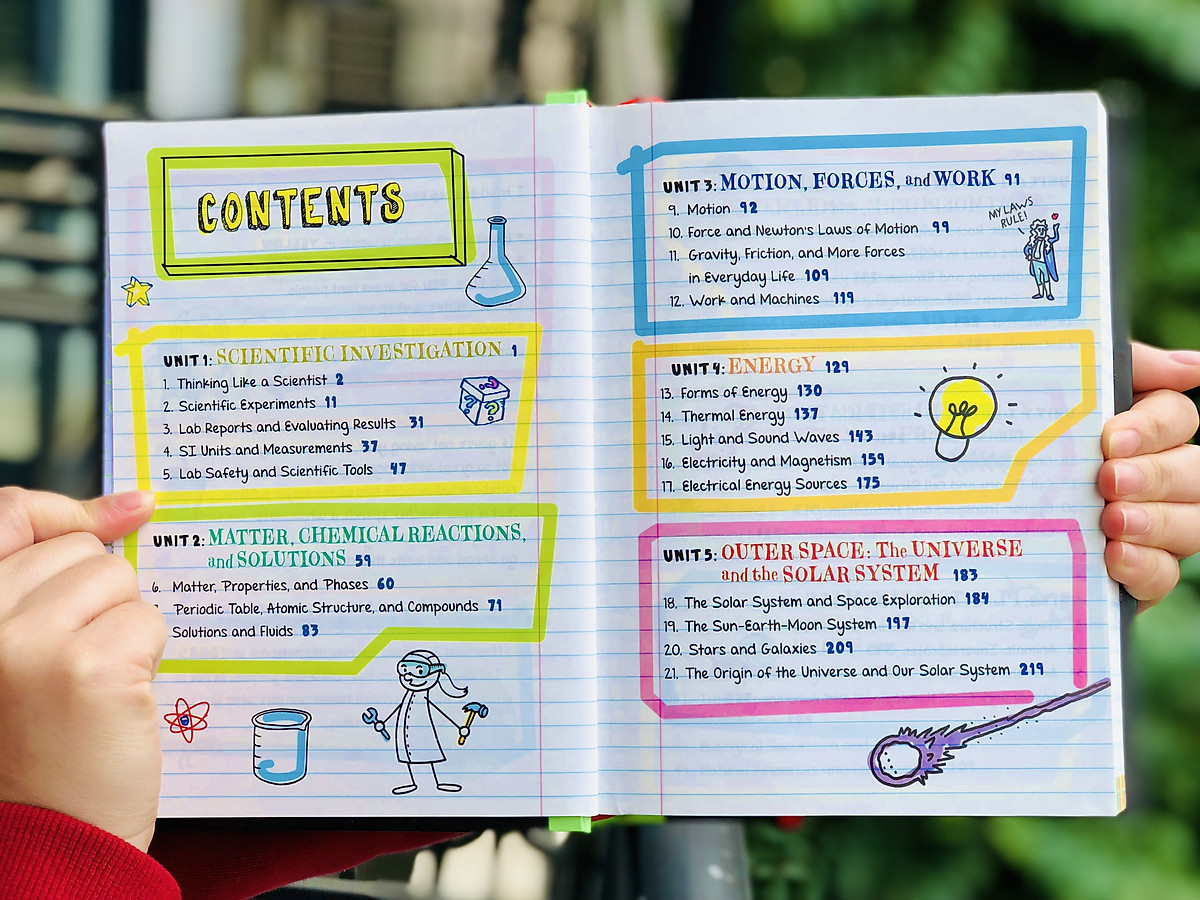 CONTENTS
UNIT 1: SCIENTIFIC INVESTIGATION 1
1. Thinking Like a Scientist 2
2. Scientific Experiments 11
3. Lab Reports and Evaluating Results 31
4. SI Units and Measurements 37
5. Lab Safety and Scientific Tools 47
UNIT 2: MATTER, CHEMICAL REACTIONS,
and SOLUTIONS 59
6. Matter, Properties, and Phases 60
Periodic Table, Atomic Structure, and Compounds 71
Solutions and Fluids 83
UNIT 3: MOTION, FORCES, and WORK 91
9. Motion 92
10. Force and Newton's Laws of Motion 99
11. Gravity, Friction, and More Forces
in Everyday Life 109
12. Work and Machines 119
MY LAWS
RULE!
UNIT 4: ENERGY 129
13. Forms of Energy 130
14. Thermal Energy 137
15. Light and Sound Waves 143
16. Electricity and Magnetism 159
17. Electrical Energy Sources 175
UNIT 5: OUTER SPACE: The UNIVERSE
and the SOLAR SYSTEM 183
18. The Solar System and Space Exploration 184
19. The Sun-Earth-Moon System 197
20. Stars and Galaxies 209
21. The Origin of the Universe and Our Solar System 219